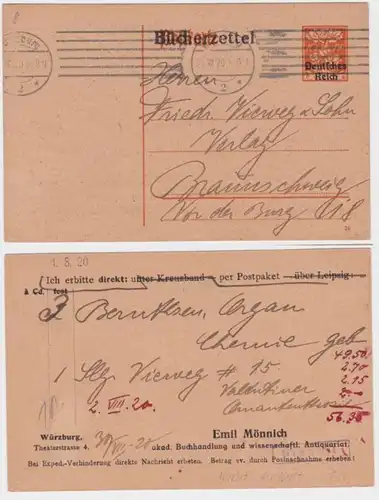 Bücherzettel
Deutsches
Reich
Herren
Friedr. Vieweg & Sohn
Verlag
Braunschweig
Vor der Burg 18
1. 8. 20
Ich erbitte direkt: unter Kreuzband per Postpaket über Leipzig:
à Cd. fest
3 Bernthsen, Organ
Chemie geb
49.50
1 Slg Vieweg # 15
2.70
2.15
2. VIII. 20.
Valentiner
56.35
Würzburg,
Emil Mönnich
Theaterstrasse 4.
30/VII. 20
akad. Buchhandlung und wissenschaftl. Antiquariat.
Bei Exped.-Verhinderung direkte Nachricht erbeten. Betrag ev. durch Postnachnahme erheben!